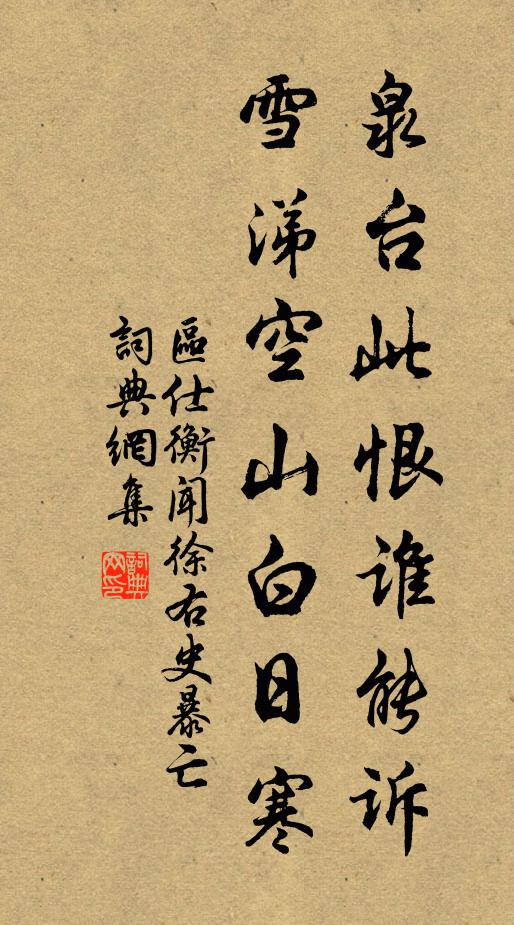 泉台此恨谁能诉
雪涕空山白日寒
區仕衡聞徐右史暴亡
詞典網集
詞典網印